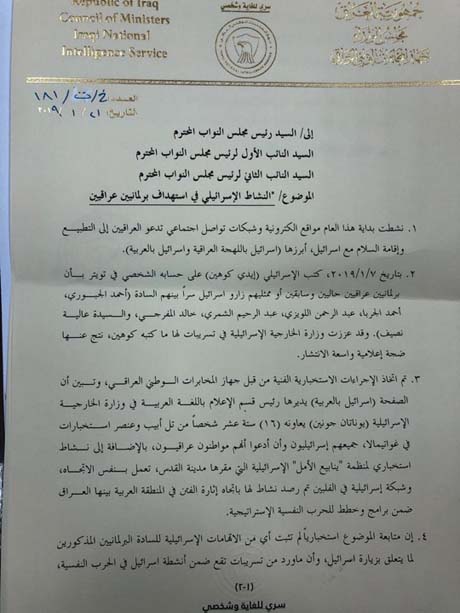 Republic of Iraq
Council of Ministers
Iraqi National
Intelligence Service
سري للغاية وشخصي
جمهورية العراق
مجلس الوزراء
العدد: خ/ت/١٨١
التاريخ: ٢١/ ١ /٢٠١٩
إلى/ السيد رئيس مجلس النواب المحترم
السيد النائب الأول لرئيس مجلس النواب المحترم
السيد النائب الثاني لرئيس مجلس النواب المحترم
الموضوع/ "النشاط الإسرائيلي في استهداف برلمانيين عراقيين
١. نشطت بداية هذا العام مواقع الكترونية وشبكات تواصل اجتماعي تدعو العراقيين إلى التطبيع
وإقامة السلام مع اسرائيل، أبرزها (اسرائيل باللهجة العراقية واسرائيل بالعربية).
٢. بتاريخ ٢٠١٩/١/٧، كتب الإسرائيلي (إيدي كوهين) على حسابه الشخصي في تويتر بأن
برلمانيين عراقيين حاليين وسابقين أو ممثليهم زارو اسرائيل سراً بينهم السادة (أحمد الجبوري،
أحمد الجربا، عبد الرحمن اللويزي، عبد الرحيم الشمري، خالد المفرجي، والسيدة عالية
نصيف). وقد عززت وزارة الخارجية الإسرائيلية في تسريبات لها ما كتبه كوهين، نتج عنها
ضجة إعلامية واسعة الانتشار.
٣. تم اتخاذ الإجراءات الاستخبارية الفنية من قبل جهاز المخابرات الوطني العراقي، وتبين أن
الصفحة (اسرائيل بالعربية) يديرها رئيس قسم الإعلام باللغة العربية في وزارة الخارجية
الإسرائيلية (يوناتان جونين) يعاونه (١٦) ستة عشر شخصاً من تل أبيب وعنصر استخبارات
في غواتيمالا، جميعهم إسرائيليون وأن أدعوا أنهم مواطنون عراقيون، بالإضافة إلى نشاط
استخباري لمنظمة "ينابيع الأمل" الإسرائيلية التي مقرها مدينة القدس، تعمل بنفس الاتجاه،
وشبكة إسرائيلية في الفلبين تم رصد نشاط لها باتجاه إثارة الفتن في المنطقة العربية بينها العراق
ضمن برامج وخطط للحرب النفسية الإستراتيجية.
٤. إن متابعة الموضوع استخبارياً لم تثبت أي من الاتهامات الإسرائيلية للسادة البرلمانيين المذكورين
لما يتعلق بزيارة اسرائيل، وأن ماورد من تسريبات تقع ضمن أنشطة اسرائيل في الحرب النفسية،
(١-٢)
سري للغاية وشخصي